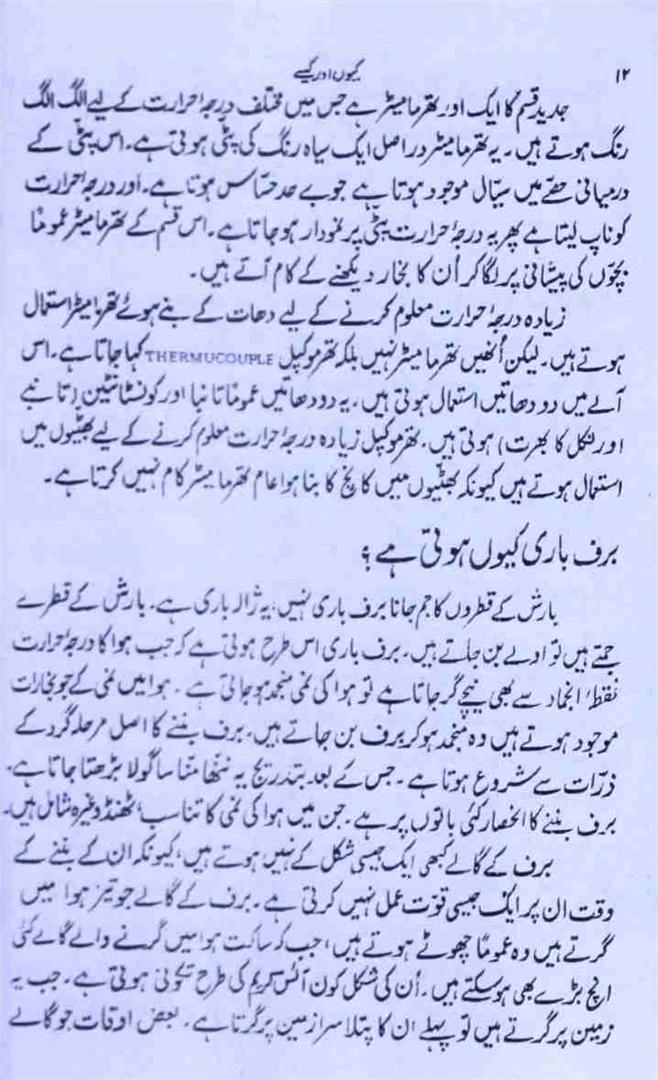 ۱۲ کیوں اور کیسے
جدید قسم کا ایک اور تھرمامیٹر ہے جس میں مختلف درجۂ حرارت کے لیے الگ الگ
رنگ ہوتے ہیں۔ یہ تھرمامیٹر دراصل ایک سیاہ رنگ کی پٹی ہوتی ہے۔ اس پٹی کے
درمیانی حصّے میں سیّال موجود ہوتا ہے جو بے حد حسّاس ہوتا ہے۔ اور درجۂ حرارت
کو ناپ لیتا ہے پھر یہ درجۂ حرارت پٹی پر نمودار ہو جاتا ہے۔ اس قسم کے تھرمامیٹر عموماً
بچّوں کی پیشانی پر لگا کر اُن کا بخار دیکھنے کے کام آتے ہیں۔
زیادہ درجۂ حرارت معلوم کرنے کے لیے دھات کے بنے ہوئے تھرمامیٹر استعمال
ہوتے ہیں۔ لیکن اُنھیں تھرمامیٹر نہیں بلکہ تھرموکپل THERMUCOUPLE کہا جاتا ہے۔ اس
آلے میں دو دھاتیں استعمال ہوتی ہیں۔ یہ دو دھاتیں عموماً تانبا اور کونسٹانٹین (تانبے
اور نکل کا بھرت) ہوتی ہیں۔ تھرموکپل زیادہ درجۂ حرارت معلوم کرنے کے لیے بھٹیوں میں
استعمال ہوتے ہیں کیونکہ بھٹیوں میں کانچ کا بنا ہوا عام تھرمامیٹر کام نہیں کرتا ہے۔
برف باری کیوں ہوتی ہے؟
بارش کے قطروں کا جم جانا برف باری نہیں، یہ ژالہ باری ہے۔ بارش کے قطرے
جمتے ہیں تو اولے بن جاتے ہیں۔ برف باری اس طرح ہوتی ہے کہ جب ہوا کا درجۂ حرارت
نقطۂ انجماد سے بھی نیچے گر جاتا ہے تو ہوا کی نمی منجمد ہو جاتی ہے۔ ہوا میں نمی کے جو بخارات
موجود ہوتے ہیں وہ منجمد ہو کر برف بن جاتے ہیں۔ برف بننے کا اصل مرحلہ گرد کے
ذرّات سے شروع ہوتا ہے۔ جس کے بعد بتدریج یہ ننھا منّا سا گولا بڑھتا جاتا ہے۔
برف بننے کا انحصار کئی باتوں پر ہے۔ جن میں ہوا کی نمی کا تناسب، ٹھنڈ وغیرہ شامل ہیں۔
برف کے گالے کبھی ایک جیسی شکل کے نہیں ہوتے ہیں، کیونکہ ان کے بننے کے
وقت ان پر ایک جیسی قوت عمل نہیں کرتی ہے۔ برف کے گالے جو تیز ہوا میں
گرتے ہیں وہ عموماً چھوٹے ہوتے ہیں، جب کہ ساکت ہوا میں گرنے والے گالے کئی
انچ بڑے بھی ہو سکتے ہیں۔ اُن کی شکل کون آئس کریم کی طرح تکونی ہوتی ہے۔ جب یہ
زمین پر گرتے ہیں تو پہلے ان کا پتلا سرا زمین پر گرتا ہے۔ بعض اوقات جو گالے